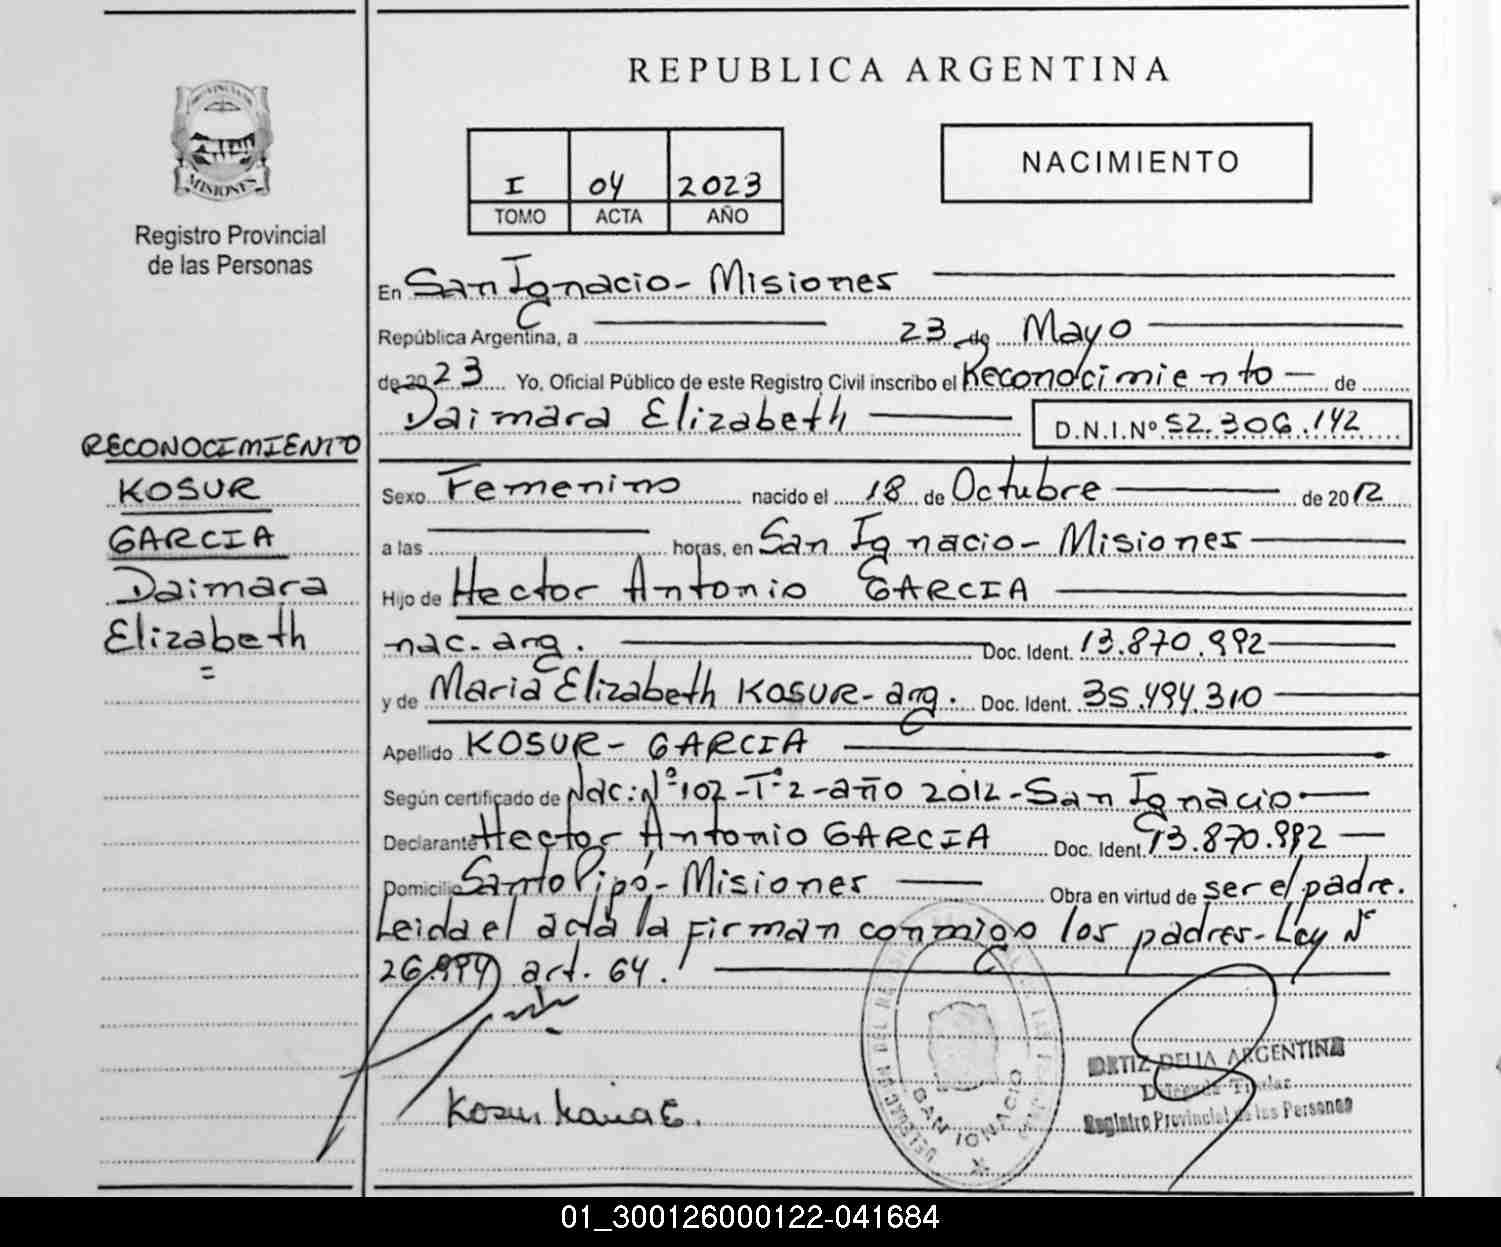 REPUBLICA ARGENTINA
PROVINCIA DE
MISIONES
Registro Provincial
de las Personas
I 04 2023
TOMO ACTA AÑO
NACIMIENTO
En San Ignacio - Misiones
República Argentina, a 23 de Mayo
de 2023 Yo, Oficial Público de este Registro Civil inscribo el Reconocimiento de
Daimara Elizabeth D.N.I.Nº 52.306.142
RECONOCIMIENTO
KOSUR
GARCIA
Daimara
Elizabeth
Sexo Femenino nacido el 18 de Octubre de 2012
a las horas, en San Ignacio - Misiones
Hijo de Hector Antonio GARCIA
nac. arg. Doc. Ident. 13.870.992
y de Maria Elizabeth KOSUR - arg. Doc. Ident. 35.494.310
Apellido KOSUR - GARCIA
Según certificado de Nac: Nº 102 - Tº 2 - año 2012 - San Ignacio
Declarante Hector Antonio GARCIA Doc. Ident. 13.870.992
Domicilio Santo Pipó - Misiones Obra en virtud de ser el padre.
Leida el acta la firman conmigo los padres - Ley Nº
26.994 art. 64.
Kosur Maria E.
SAN IGNACIO
ORTIZ DELIA ARGENTINA
Delegada Titular
Registro Provincial de las Personas
01_300126000122-041684